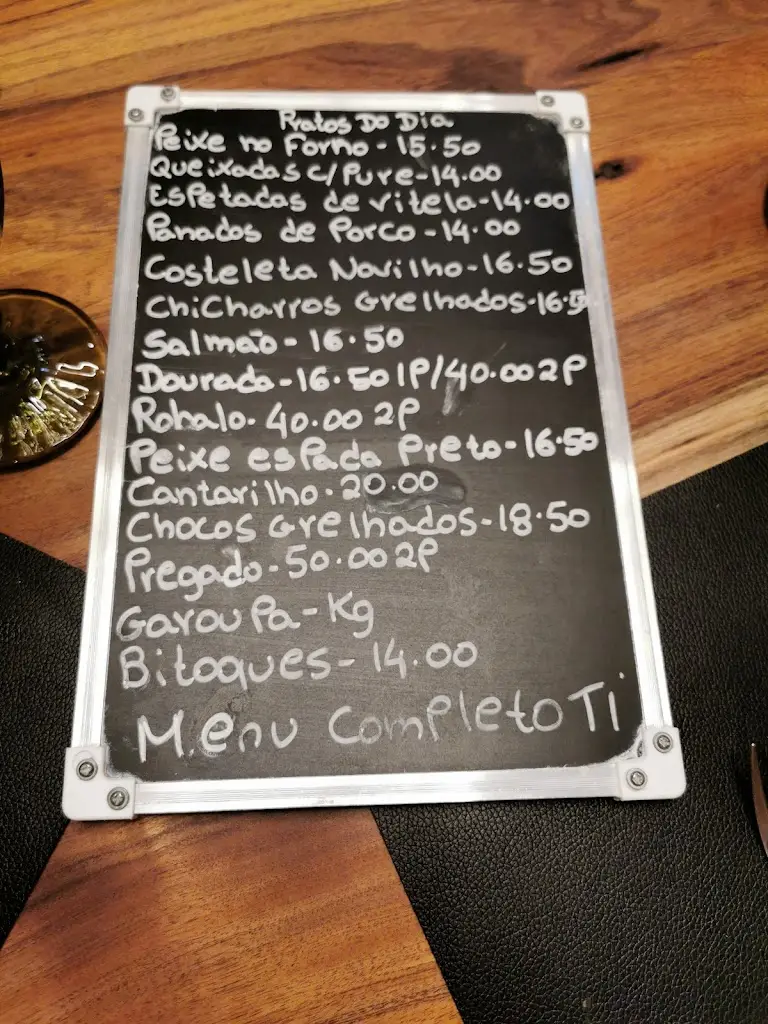 Pratos Do Dia
Peixe no Forno - 15.50
Queixadas c/Pure - 14.00
Espetadas de vitela - 14.00
Panados de Porco - 14.00
Costeleta Novilho - 16.50
Chicharros Grelhados - 16.50
Salmão - 16.50
Dourada - 16.50 1P/40.00 2P
Robalo - 40.00 2P
Peixe espada Preto - 16.50
Cantarilho - 20.00
Chocos Grelhados - 18.50
Pregado - 50.00 2P
Garoupa - Kg
Bitoques - 14.00
Menu Completo Ti